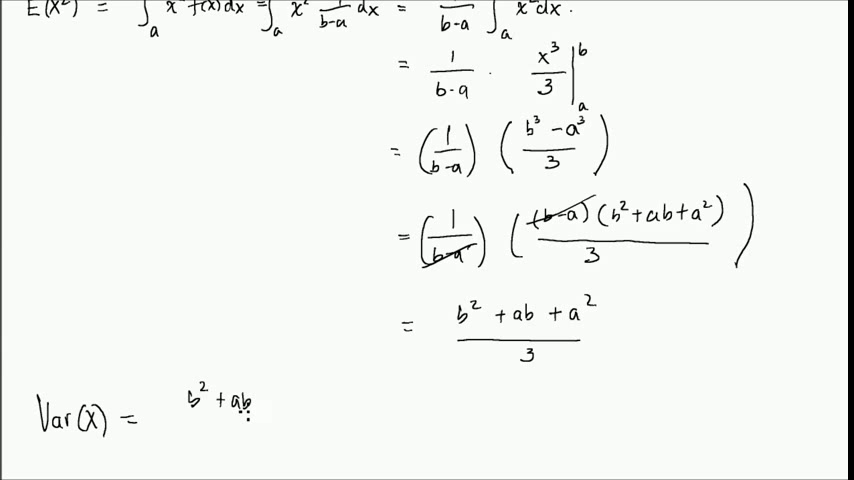 E(X²) = ∫ₐ x² f(x) dx = ∫ₐ x² 1/(b-a) dx = 1/(b-a) ∫ₐ x² dx.
= 1/(b-a) · x³/3 |ₐᵇ
= (1/(b-a)) ((b³ - a³)/3)
= (1/(b-a)) ((b-a)(b² + ab + a²)/3)
= (b² + ab + a²)/3
Var(X) = b² + ab